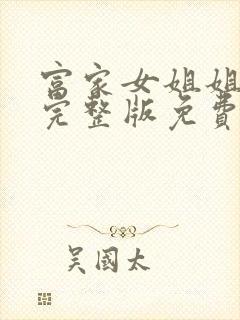 富家女姐姐
完整版免費
吴國太